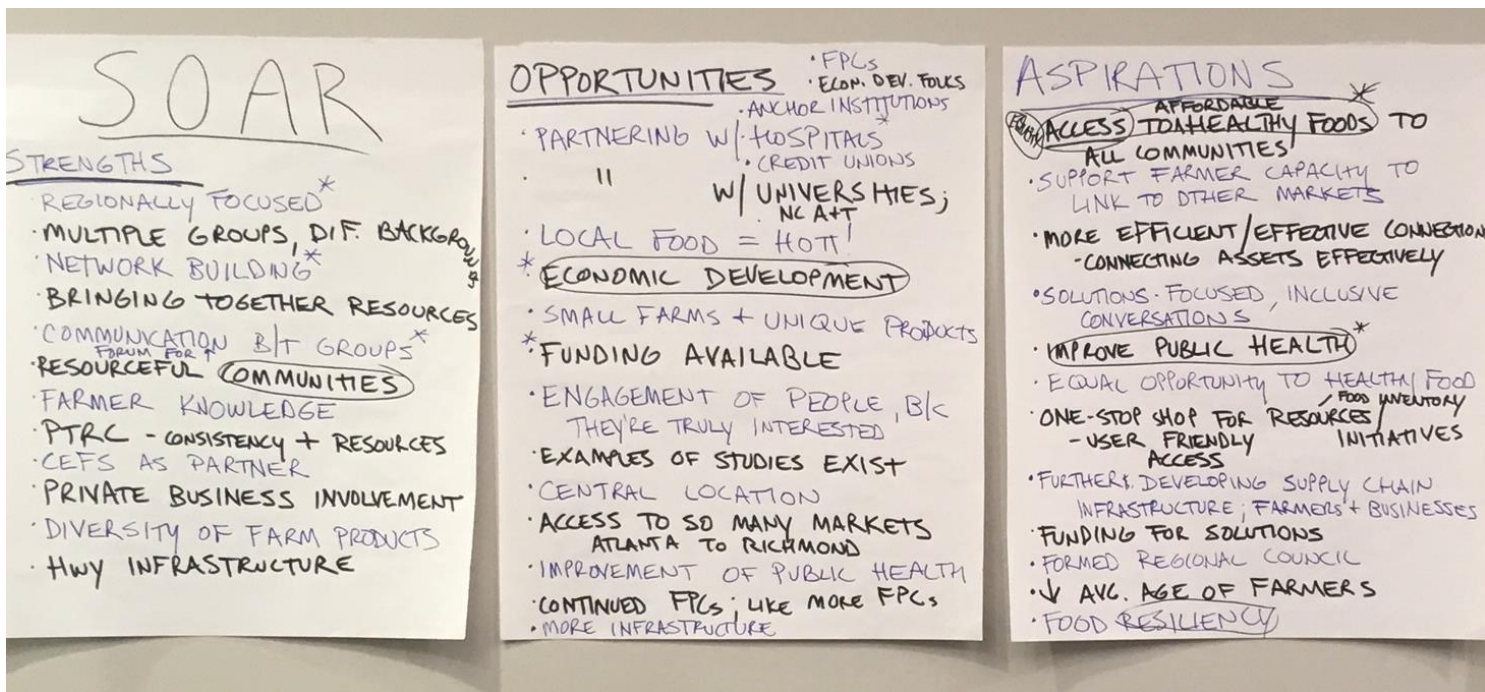 SOAR
STRENGTHS
· REGIONALLY FOCUSED *
· MULTIPLE GROUPS, DIF. BACKGROUNDS
· NETWORK BUILDING *
· BRINGING TOGETHER RESOURCES
· COMMUNICATION B/T GROUPS *
FORUM FOR ↑
· RESOURCEFUL COMMUNITIES
· FARMER KNOWLEDGE
· PTRC - CONSISTENCY + RESOURCES
· CEFS AS PARTNER
· PRIVATE BUSINESS INVOLVEMENT
· DIVERSITY OF FARM PRODUCTS
· HWY INFRASTRUCTURE
OPPORTUNITIES
· FPCs
· ECON. DEV. FOLKS
· ANCHOR INSTITUTIONS
· PARTNERING W/ · HOSPITALS *
· CREDIT UNIONS
· " W/ UNIVERSITIES;
NC A+T
· LOCAL FOOD = HOTT!
* ECONOMIC DEVELOPMENT
· SMALL FARMS + UNIQUE PRODUCTS
* FUNDING AVAILABLE
· ENGAGEMENT OF PEOPLE, B/C
THEY'RE TRULY INTERESTED
· EXAMPLES OF STUDIES EXIST
· CENTRAL LOCATION
· ACCESS TO SO MANY MARKETS
ATLANTA TO RICHMOND
· IMPROVEMENT OF PUBLIC HEALTH
· CONTINUED FPCs; LIKE MORE FPCs
· MORE INFRASTRUCTURE
ASPIRATIONS
AFFORDABLE *
ACCESS TO HEALTHY FOODS TO
ALL COMMUNITIES
· SUPPORT FARMER CAPACITY TO
LINK TO OTHER MARKETS
· MORE EFFICIENT/EFFECTIVE CONNECTION
- CONNECTING ASSETS EFFECTIVELY
· SOLUTIONS-FOCUSED, INCLUSIVE
CONVERSATIONS
· IMPROVE PUBLIC HEALTH *
· EQUAL OPPORTUNITY TO HEALTHY FOOD
FOOD INVENTORY
· ONE-STOP SHOP FOR RESOURCES/
- USER FRIENDLY INITIATIVES
ACCESS
· FURTHER DEVELOPING SUPPLY CHAIN
INFRASTRUCTURE; FARMERS + BUSINESSES
· FUNDING FOR SOLUTIONS
· FORMED REGIONAL COUNCIL
· ↓ AVG. AGE OF FARMERS
· FOOD RESILIENCY